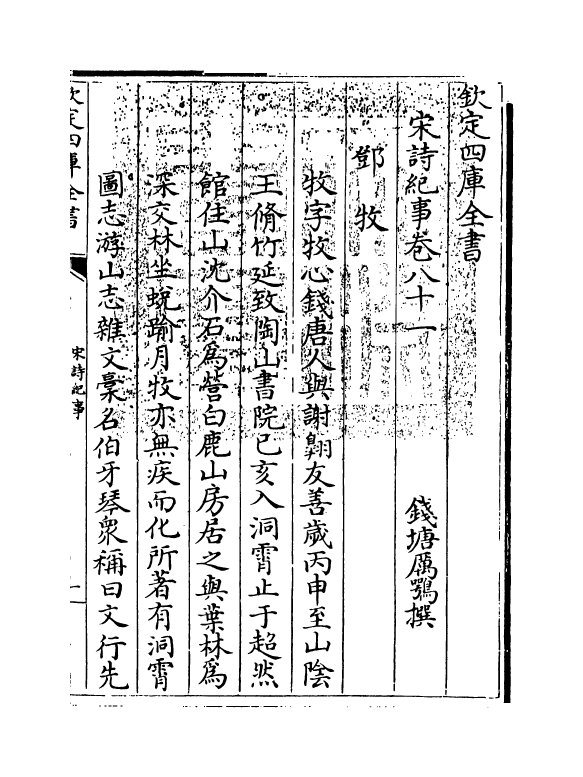 欽定四庫全書
宋詩紀事卷八十一
錢塘厲鶚撰
鄧牧
牧字牧心錢唐人與謝翺友善歲丙申至山陰
王脩竹延致陶山書院己亥入洞霄止于超然
館住山沈介石為營白鹿山房居之與葉林為
深交林坐蛻踰月牧亦無疾而化所著有洞霄
圖志游山志雜文稾名伯牙琴衆稱曰文行先
欽定四庫全書
宋詩紀事
一